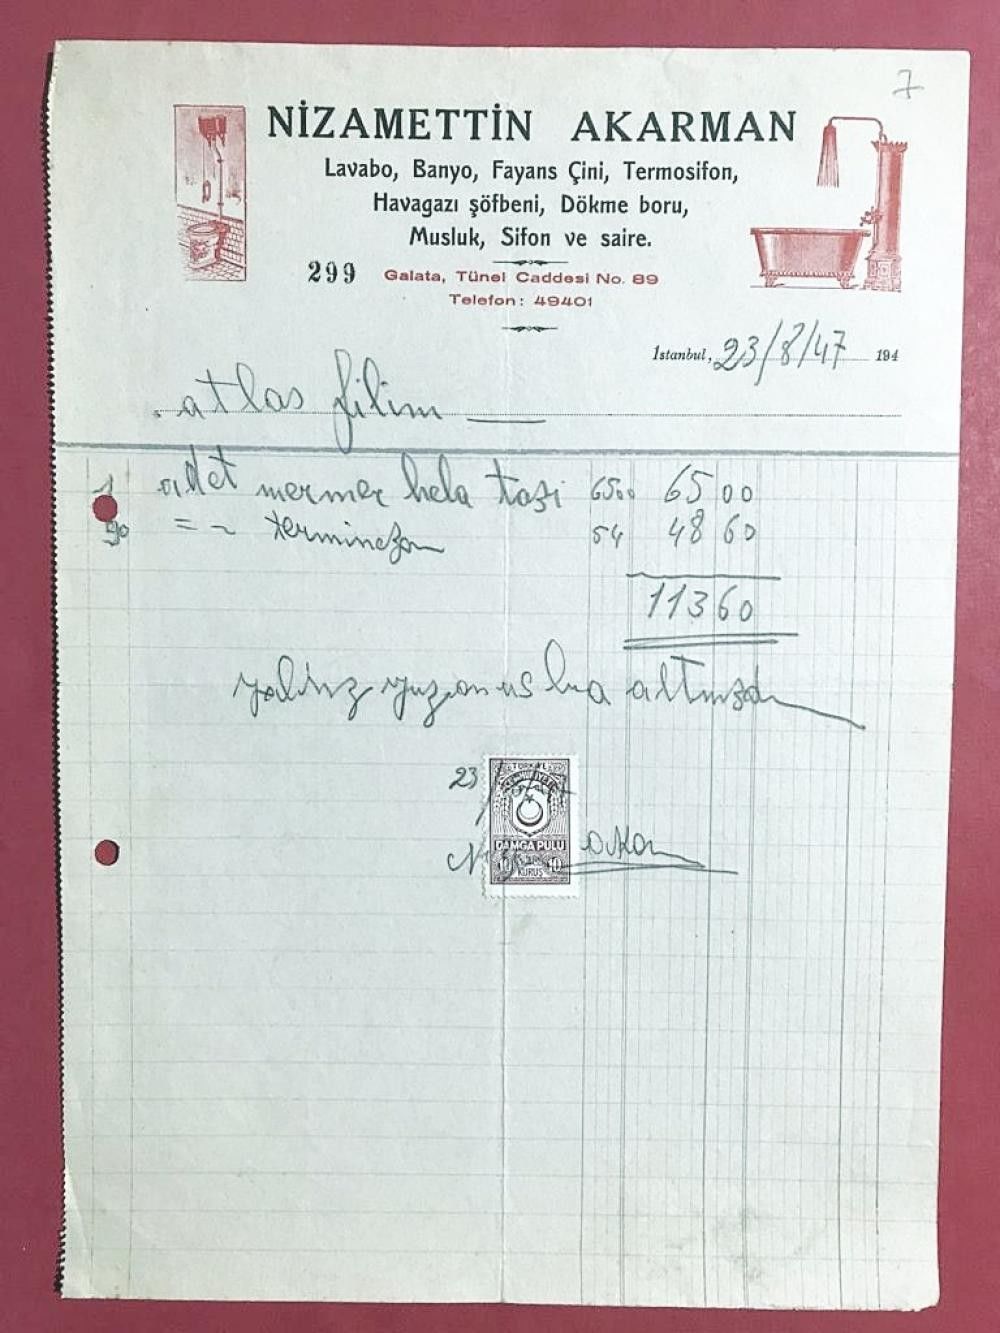 7
NİZAMETTİN AKARMAN
Lavabo, Banyo, Fayans Çini, Termosifon,
Havagazı şöfbeni, Dökme boru,
Musluk, Sifon ve saire.
299 Galata, Tünel Caddesi No. 89
Telefon: 49401
İstanbul, 23/8/47 194
atlas filim
1 adet mermer hela taşi 6500 65 00
90 = ~ 54 48 60
113 60
yalınız yuzonus lira altmışdır
23
TÜRKİYE
CUMHURİYETİ
DAMGA PULU
10 10
KURUŞ